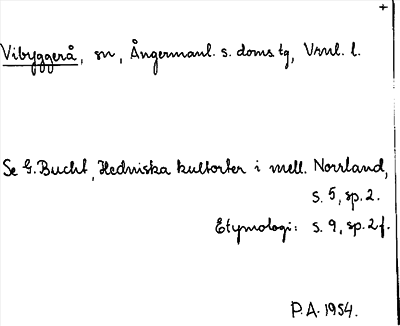 +
Vibyggerå, sn, Ångermanl. s. doms.tg, Vnnl. l.
Se G. Bucht, Hedniska kultorter i mell. Norrland,
s. 5, sp. 2.
Etymologi: s. 9, sp. 2 f.
P.A. 1954.